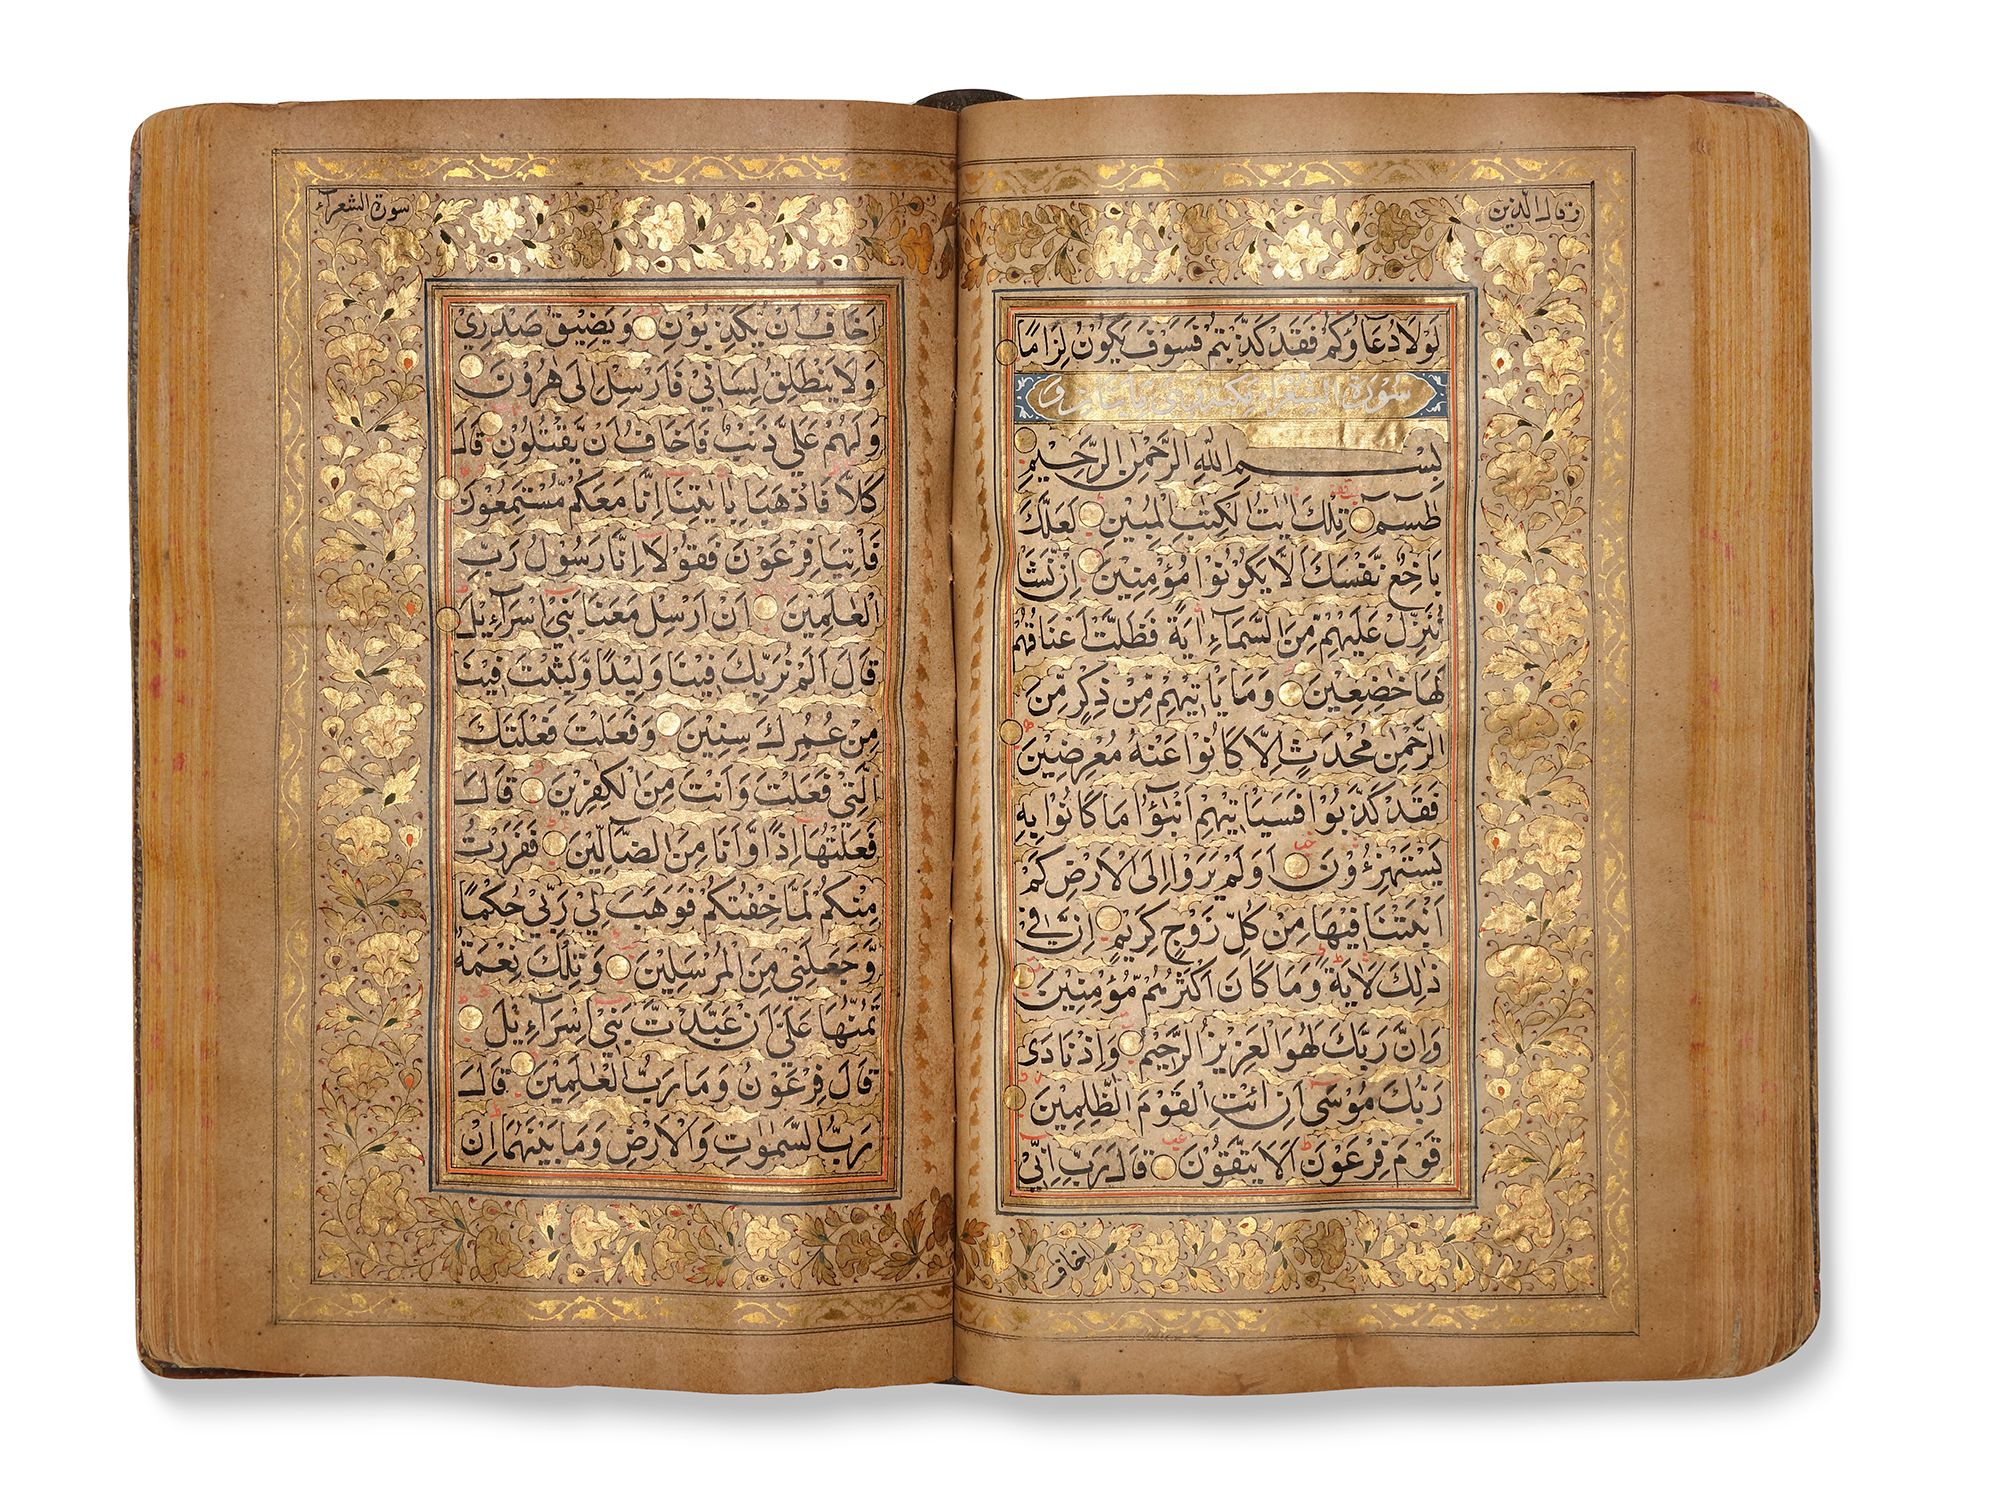 وقال الذين
لولا دعاؤكم فقد كذبتم فسوف يكون لزاما
سورة الشعراء
بِسْمِ اللهِ الرَّحْمٰنِ الرَّحِيْمِ
طٰسٓمٓ تِلْكَ اٰيٰتُ الْكِتٰبِ الْمُبِيْنِ لَعَلَّكَ
بَاخِعٌ نَّفْسَكَ اَلَّا يَكُوْنُوْا مُؤْمِنِيْنَ اِنْ نَّشَا
نُنَزِّلْ عَلَيْهِمْ مِنَ السَّمَآءِ اٰيَةً فَظَلَّتْ اَعْنَاقُهُمْ
لَهَا خٰضِعِيْنَ وَمَا يَاْتِيْهِمْ مِنْ ذِكْرٍ مِّنَ
الرَّحْمٰنِ مُحْدَثٍ اِلَّا كَانُوْا عَنْهُ مُعْرِضِيْنَ
فَقَدْ كَذَّبُوْا فَسَيَاْتِيْهِمْ اَنْبٰٓؤُا مَا كَانُوْا بِهِ
يَسْتَهْزِءُوْنَ اَوَلَمْ يَرَوْا اِلَى الْاَرْضِ كَمْ
اَنْبَتْنَا فِيْهَا مِنْ كُلِّ زَوْجٍ كَرِيْمٍ اِنَّ فِيْ
ذٰلِكَ لَاٰيَةً وَمَا كَانَ اَكْثَرُهُمْ مُّؤْمِنِيْنَ
وَاِنَّ رَبَّكَ لَهُوَ الْعَزِيْزُ الرَّحِيْمُ وَاِذْ نَادٰى
رَبُّكَ مُوْسٰٓى اَنِ ائْتِ الْقَوْمَ الظّٰلِمِيْنَ
قَوْمَ فِرْعَوْنَ اَلَا يَتَّقُوْنَ قَالَ رَبِّ اِنِّيْ
اخاف
سورة الشعرآء
اَخَافُ اَنْ يُّكَذِّبُوْنِ وَيَضِيْقُ صَدْرِيْ
وَلَا يَنْطَلِقُ لِسَانِيْ فَاَرْسِلْ اِلٰى هٰرُوْنَ
وَلَهُمْ عَلَيَّ ذَنْبٌ فَاَخَافُ اَنْ يَّقْتُلُوْنِ قَالَ
كَلَّا فَاذْهَبَا بِاٰيٰتِنَا اِنَّا مَعَكُمْ مُّسْتَمِعُوْنَ
فَاْتِيَا فِرْعَوْنَ فَقُوْلَا اِنَّا رَسُوْلُ رَبِّ
الْعٰلَمِيْنَ اَنْ اَرْسِلْ مَعَنَا بَنِيْ اِسْرَآءِيْلَ
قَالَ اَلَمْ نُرَبِّكَ فِيْنَا وَلِيْدًا وَّلَبِثْتَ فِيْنَا
مِنْ عُمُرِكَ سِنِيْنَ وَفَعَلْتَ فَعْلَتَكَ
الَّتِيْ فَعَلْتَ وَاَنْتَ مِنَ الْكٰفِرِيْنَ قَالَ
فَعَلْتُهَا اِذًا وَّاَنَا مِنَ الضَّآلِّيْنَ فَفَرَرْتُ
مِنْكُمْ لَمَّا خِفْتُكُمْ فَوَهَبَ لِيْ رَبِّيْ حُكْمًا
وَّجَعَلَنِيْ مِنَ الْمُرْسَلِيْنَ وَتِلْكَ نِعْمَةٌ
تَمُنُّهَا عَلَيَّ اَنْ عَبَّدْتَّ بَنِيْ اِسْرَآءِيْلَ
قَالَ فِرْعَوْنُ وَمَا رَبُّ الْعٰلَمِيْنَ قَالَ
رَبُّ السَّمٰوٰتِ وَالْاَرْضِ وَمَا بَيْنَهُمَا اِنْ